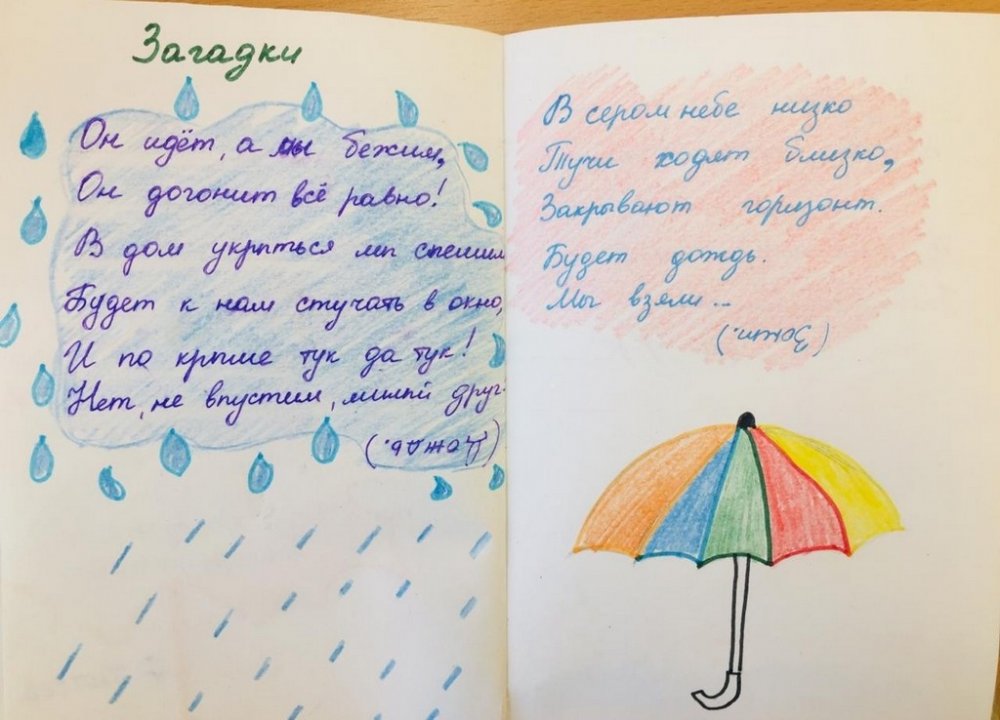 Загадки
Он идёт, а мы бежим,
Он догонит всё равно!
В дом укрыться мы спешим
Будет к нам стучать в окно,
И по крыше тук да тук!
Нет, не впустим, милый друг.
(Дождь.)
В сером небе низко
Тучи ходят близко,
Закрывают горизонт.
Будет дождь.
Мы взяли...
(Зонти.)